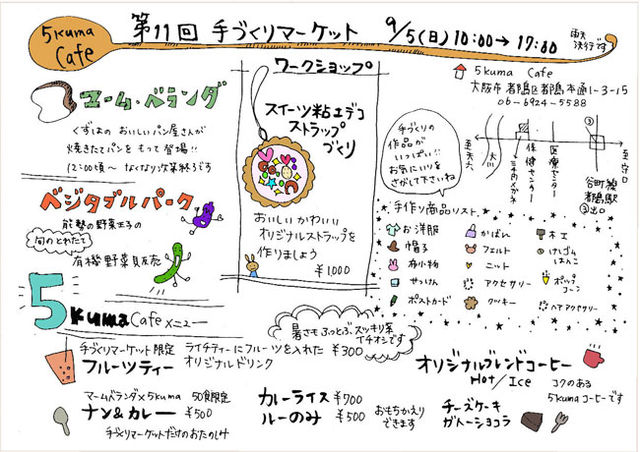 5kuma Cafe
第11回 手づくりマーケット 9/5(日) 10:00→17:00
雨天決行です
マーム・ベランダ
くずはの おいしいパン屋さんが
焼きたてパンを もって 登場!!
12:00頃〜 なくなり次第終了です
ベジタブルパーク
能勢の野菜王子の
旬のとれたて
有機野菜販売
ワークショップ
スイーツ粘土デコ
ストラップ
づくり
おいしい かわいい
オリジナルストラップを
作りましょう
¥1000
5kuma Cafe
大阪市 都島区 都島本通1-3-15
06-6924-5588
至天六
大川
保健センター
医療センター
谷町線
都島駅
②出口
至守口
手づくりの
作品が
いっぱい!!
お気にいりを
さがして下さいね
手作り商品リスト
お洋服
かばん
木工
帽子
フェルト
けしゴムはんこ
布小物
ニット
ポップコーン
せっけん
アクセサリー
ポストカード
クッキー
ヘアアクセサリー
5kuma Cafe メニュー
暑さもふっとぶスッキリ系
イチオシです
手づくりマーケット限定
フルーツティー
ライチティーにフルーツを入れた
オリジナルドリンク
¥300
マームベランダ×5kuma 50食限定
ナン&カレー ¥500
手づくりマーケットだけのおたのしみ
カレーライス ¥700
ルーのみ ¥500
おもちかえり
できます
オリジナルブレンドコーヒー
Hot/Ice
コクのある
5kumaコーヒーです
チーズケーキ
ガトーショコラ